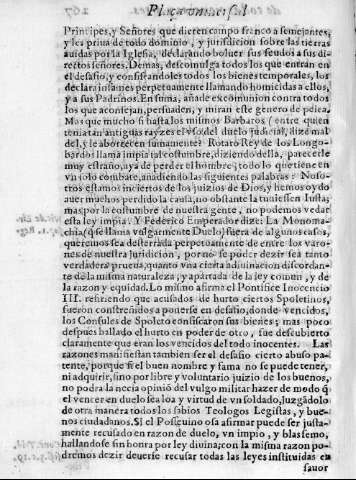 Plaça vniuersal
Principes, y Señores que dieren campo franco a semejantes,
y les priua de todo dominio, y juridicion sobre las tierras
auidas por la Iglesia, declarando boluer sus feudos a sus di-
rectos señores. Demas, descomulga todos los que entran en
el desafio, y confiscandoles todos los bienes temporales, los
declara infames perpetuamente llamando homicidas a ellos,
y a sus Padrinos. En suma, añade excomunion contra todos
los que aconsejan, persuaden, y miran este genero de pelea.
Mos que mucho si hasta los mismos Barbaros (entre quien
tenia tan antiguas rayzes el vso del duelo judicial, dize mal
del, y le aborrecen sumamente? Rotaro Rey de los Longo-
bardos llama impia tal costumbre, diziendo della, parecerle
muy estraño, aya de perder el hombre, todo lo que tiene en
vn solo combate, añadiendo las siguientes palabras: Noso-
tros estamos inciertos de los juizios de Dios, y hemos oydo
auer muchos perdido la causa, no obstante la tuuiessen Iusta;
mas por la costumbre de nuestra gente, no podemos vedar
esta ley impia. Y Federico Emperador dize: La Monoma-
chia (que se llama vulgarmente Duelo) fuera de algunos casos,
queremos sea desterrada perpetuamente de entre los varo-
nes de nuestra juridicion, porne se poder dezir sea tanto
verdadera prueua, quanto vna cierta diuinacion discordan-
te de la misma naturaleza, y apartada de la ley comun, y de
la razon y equidad. Lo mismo afirma el Pontifice Inocencio
III. refiriendo que acusados de hurto ciertos Spoletinos,
fueron constreñidos a ponerse en desafio, donde vencidos,
los Consules de Spoleto confiscaron sus bienes; mas poco
despues hallado el hurto en poder de otro, fue descubierto
claramente que eran los vencidos del todo inocentes. Las
razones manifiestan tambien ser el desafio cierto abuso pa-
tente, porque si el buen nombre y fama no se puede tener,
ni adquirir, sino por libre y voluntario juizio de los buenos,
no podra la necia opinió del vulgo militar hazer de modo q̃
el vencer en duelo sea loa y virtud de vn soldado, juzgãdolo
de otra manera todos los sabios Teologos Legistas, y bue-
nos ciudadanos. Si el Posseuino osa afirmar puede ser justa-
mente recusado en razon de duelo, vn impio, y blasfemo,
hallandose sin honra por ley diuina; con la misma razon po-
dremos dezir deuerse recusar todas las leyes instituidas en
fauor